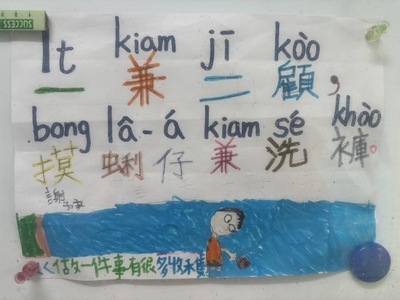 SUCCESS
It kiam jī kòo
一 兼 二 顧,
bong lâ-á kiam sé khòo
摸 蜊 仔 兼 洗 褲。
做一件事有很多收穫